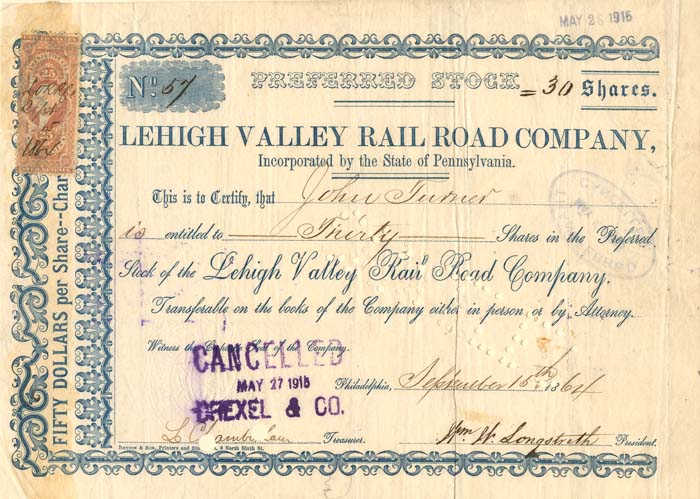 MAY 26 1915
25
25
No. 57
PREFERRED STOCK
= 30 Shares.
LEHIGH VALLEY RAIL ROAD COMPANY,
Incorporated by the State of Pennsylvania.
This is to Certify, that John Turner
is entitled to Thirty Shares in the Preferred
Stock of the Lehigh Valley Rail Road Company.
Transferable on the books of the Company either in person or by Attorney.
Witness the Seal of the Company.
CANCELLED
MAY 27 1915
DREXEL & CO.
Philadelphia, September 15th 1864
Treasurer.
Wm. W. Longstreth President.
Ransom & Son, Printers and 8 North Sixth St.
FIFTY DOLLARS per Share--Char